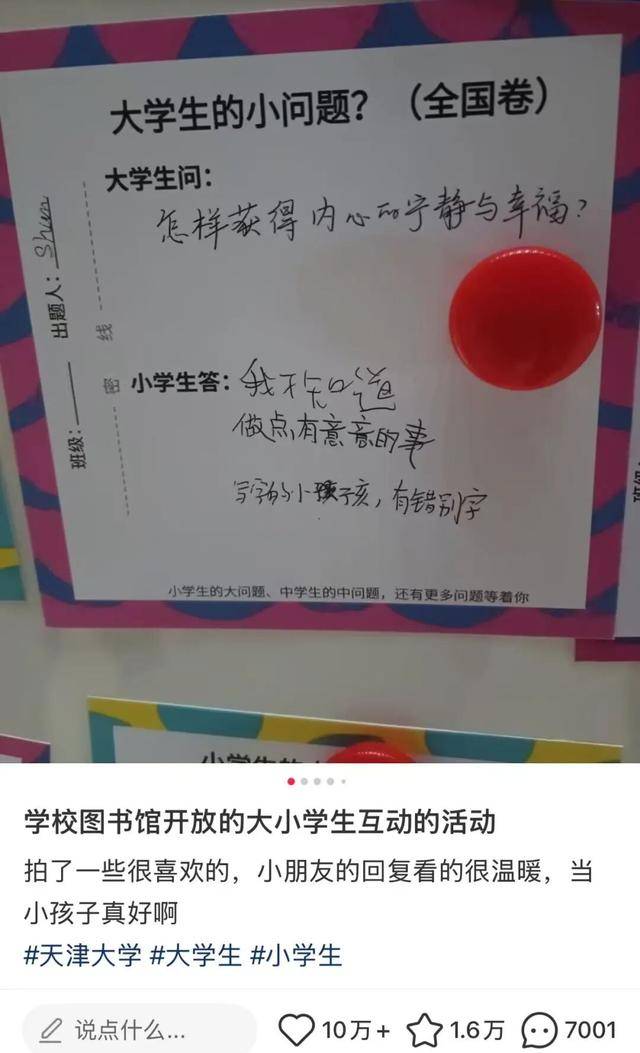 大学生的小问题？（全国卷）
大学生问：
怎样获得内心的宁静与幸福？
出题人：Shun
班级：
密
线
小学生答：我不知道
做点有意意的事
写字的小孩子孩，有错别字
小学生的大问题、中学生的中问题，还有更多问题等着你
学校图书馆开放的大小学生互动的活动
拍了一些很喜欢的，小朋友的回复看的很温暖，当
小孩子真好啊
#天津大学 #大学生 #小学生
说点什么...
10万+
1.6万
7001